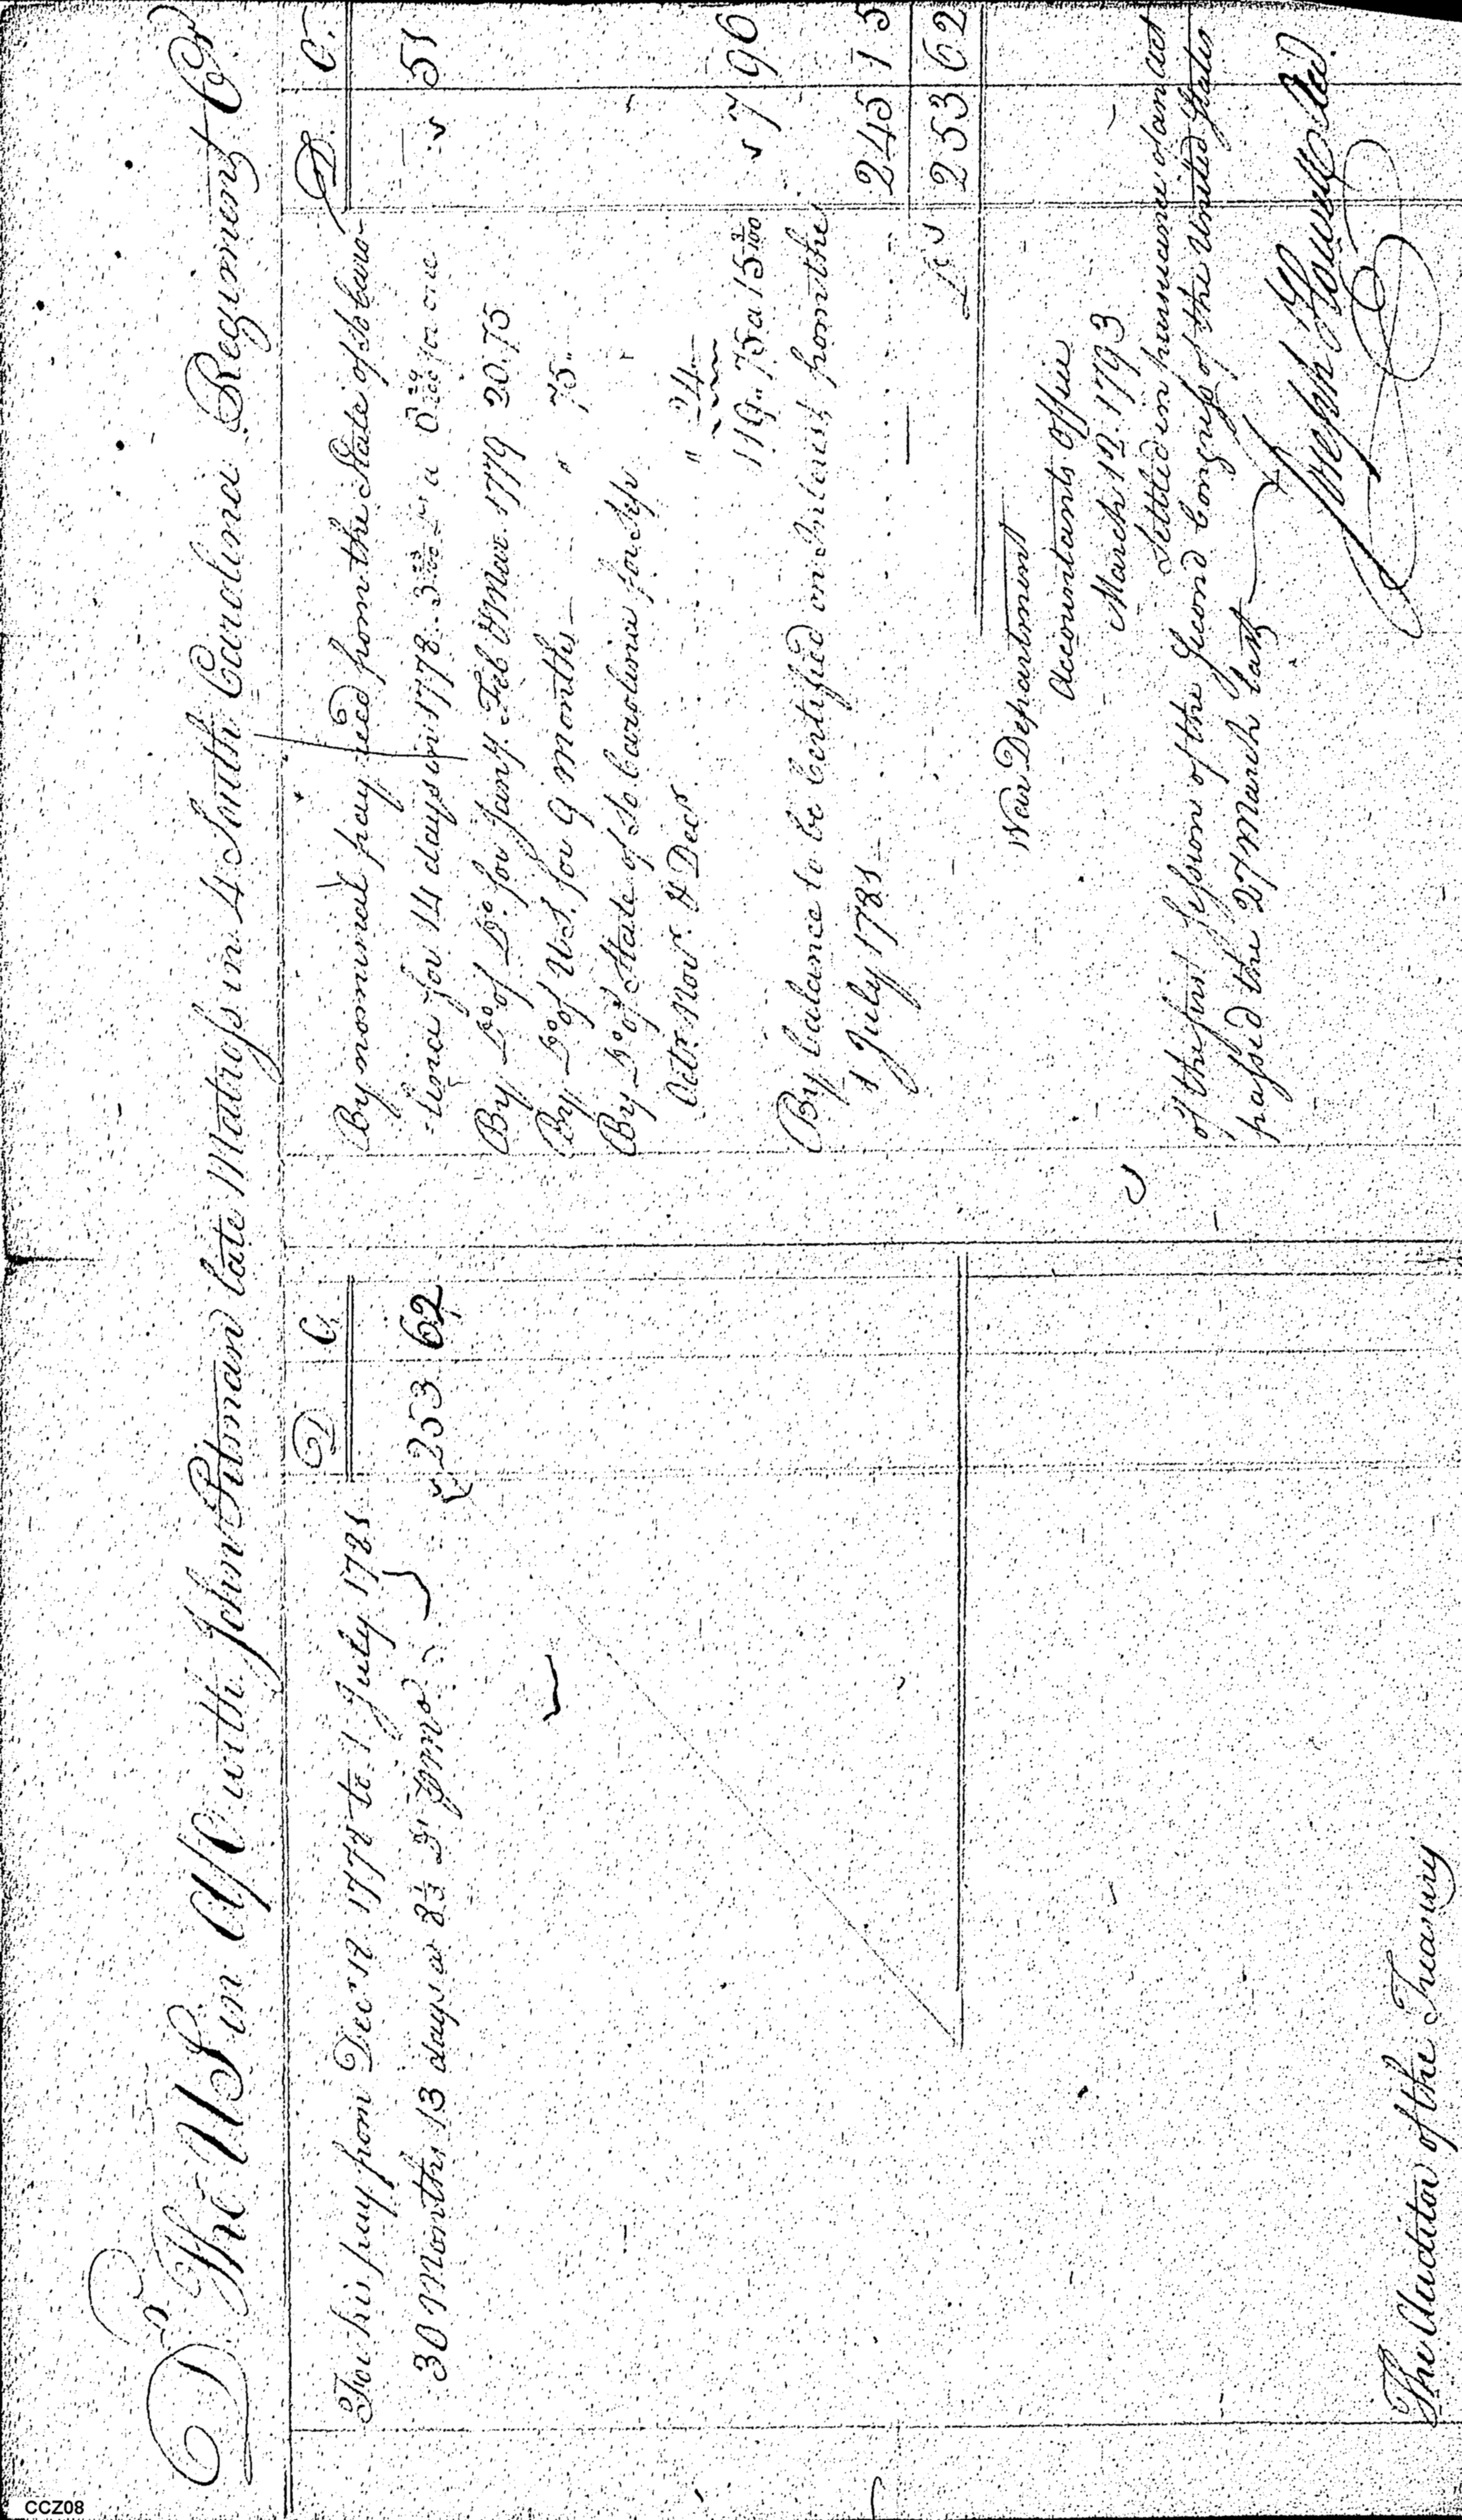 Dr The US in A/C with John Pitman late Matross in 4 South Carolina Regiment Cr
D C
For his pay from Decr 18 1778 to 1 July 1781
30 Months 13 days a 8 1/3 Dr pr mo 253 62
The Auditor of the Treasury
D. C.
By nominal pay recd from the State of So Caro-
-lina for 14 days in 1778. 3 a for one 51
By Do of Do. for Jany. Feb & Mar. 1779 20.75
By Do of U.S. for 9 months — " 75 "
By Do of State of So Carolina for Sepr
Octr. Novr. & Decr " 24
119 " 75 a 15 3/100 7 96
By balance to be Certified on Interest from the
1 July 1781 245 15
253 62
War Department
Accountants Office
March 12. 1793
Settled in pursuance of an act
of the first Session of the Second Congress of the United States
passed the 27 March last
Joseph Howell
CCZ08